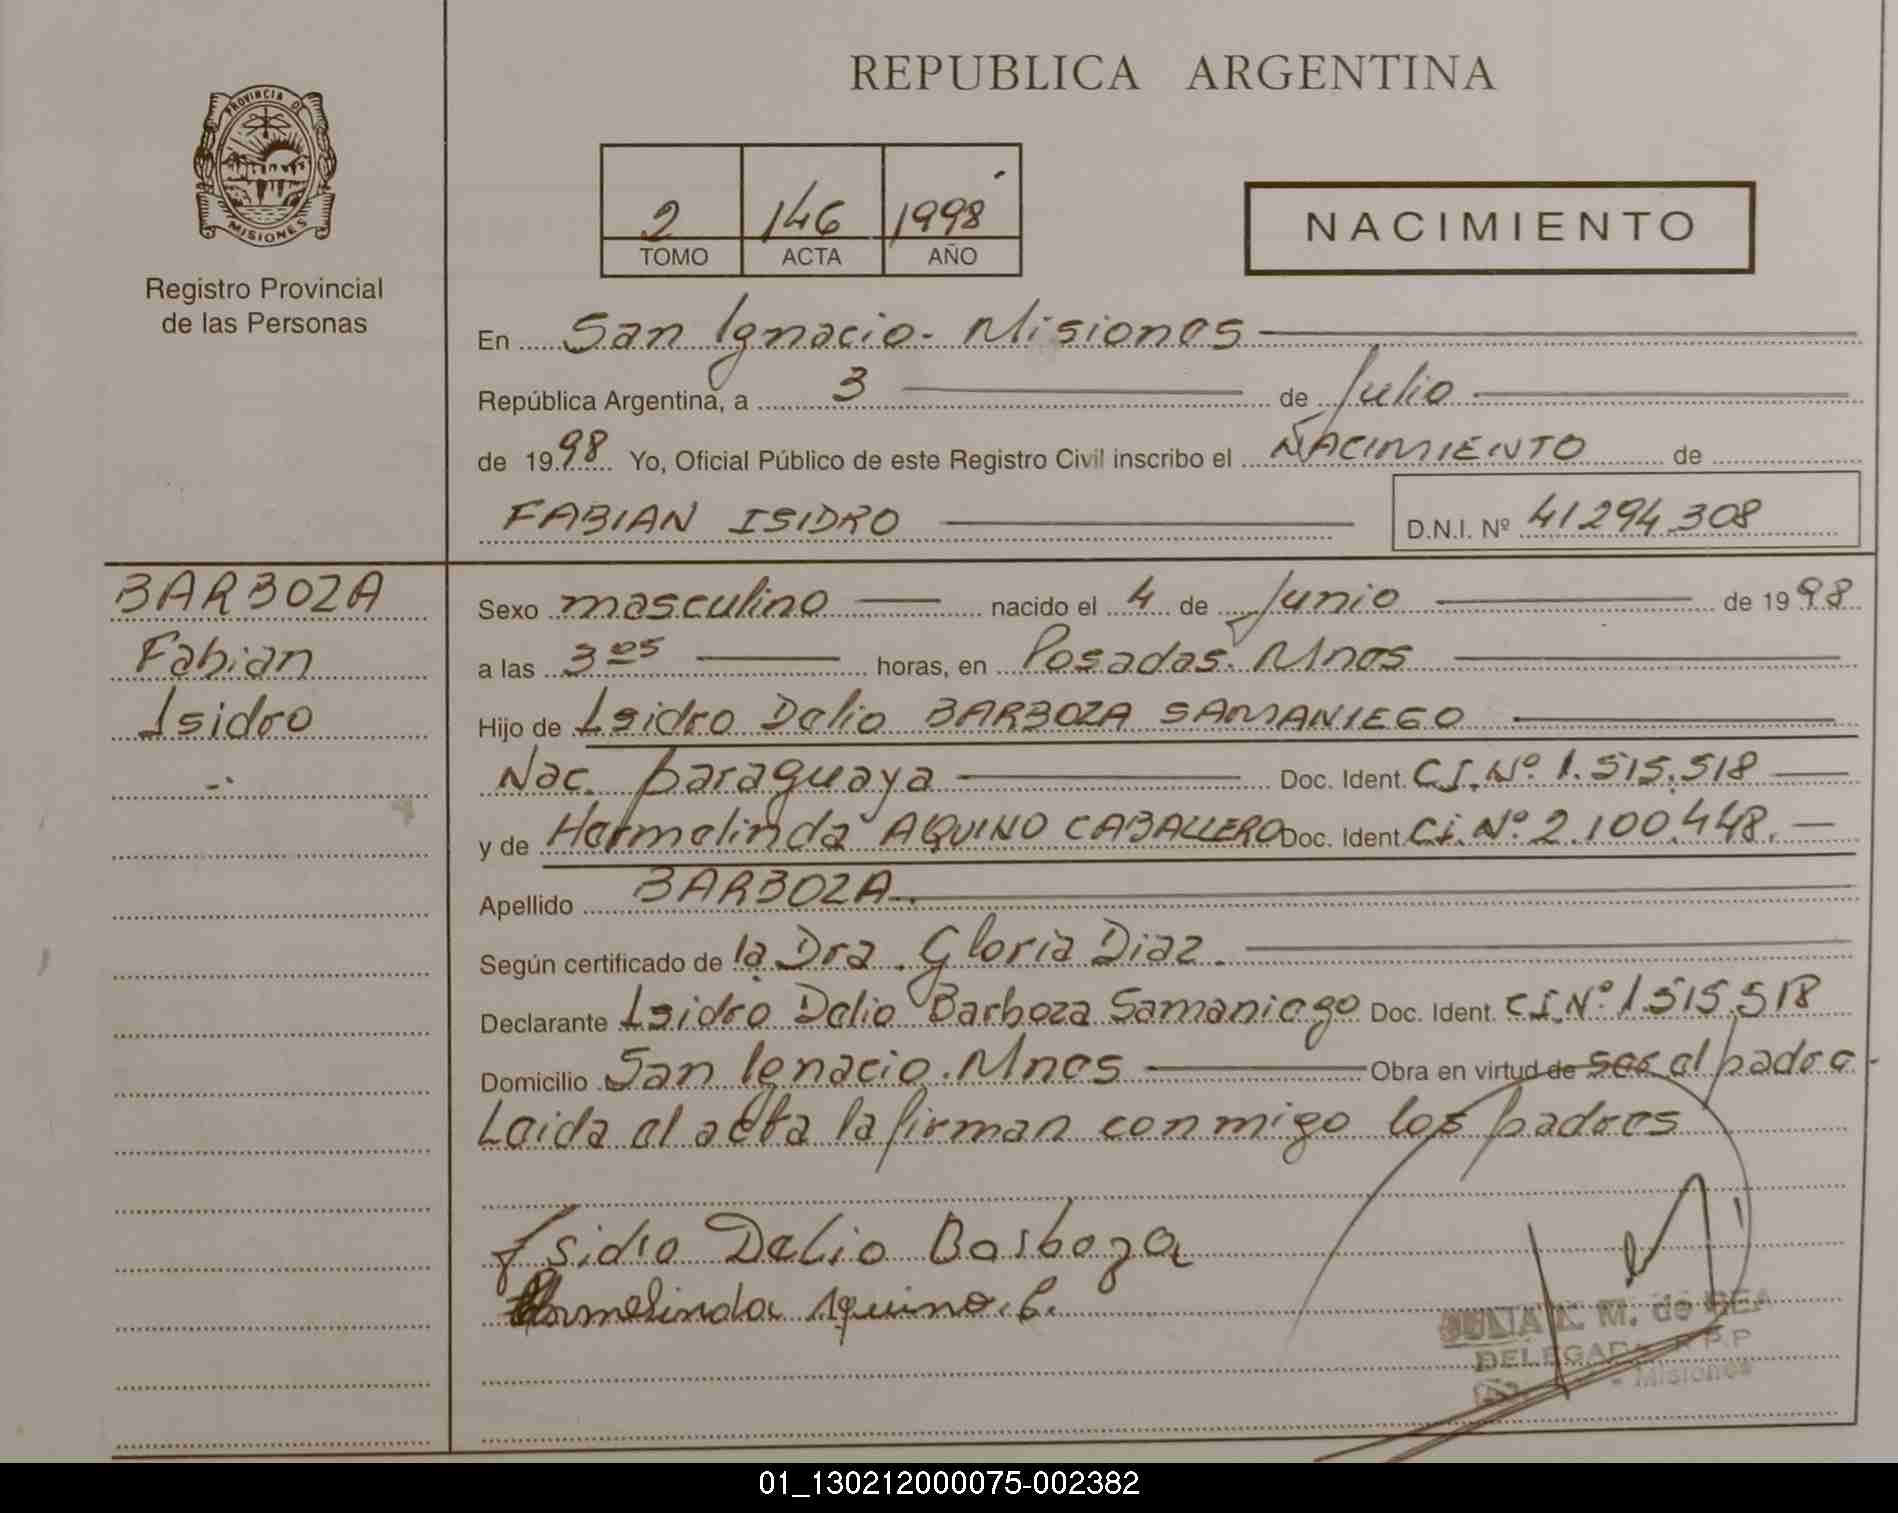 REPUBLICA ARGENTINA
PROVINCIA DE
MISIONES
Registro Provincial
de las Personas
2 146 1998
TOMO ACTA AÑO
NACIMIENTO
En San Ignacio - Misiones
República Argentina, a 3 de Julio
de 1998 Yo, Oficial Público de este Registro Civil inscribo el NACIMIENTO de
FABIAN ISIDRO D.N.I. Nº 41294308
BARBOZA
Fabian
Isidro
Sexo masculino nacido el 4 de Junio de 1998
a las 3 05 horas, en Posadas. Mnes
Hijo de Isidro Delio BARBOZA SAMANIEGO
Nac. paraguaya Doc. Ident. C.I. Nº 1.515.518
y de Hermelinda AQUINO CABALLERO Doc. Ident. C.i. Nº 2.100.448.
Apellido BARBOZA
Según certificado de la Dra. Gloria Diaz.
Declarante Isidro Delio Barboza Samaniego Doc. Ident. C.I. Nº 1.515.518
Domicilio San Ignacio. Mnes Obra en virtud de ser el padre.
Leida el acta la firman conmigo los padres
Isidro Delio Barboza
Hermelinda Aquino. C.
M. de
DELEGADA R.P.P
- Misiones
01_130212000075-002382